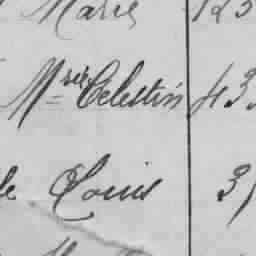 Marie 123
Mrie Celestin 43
le Louis 3